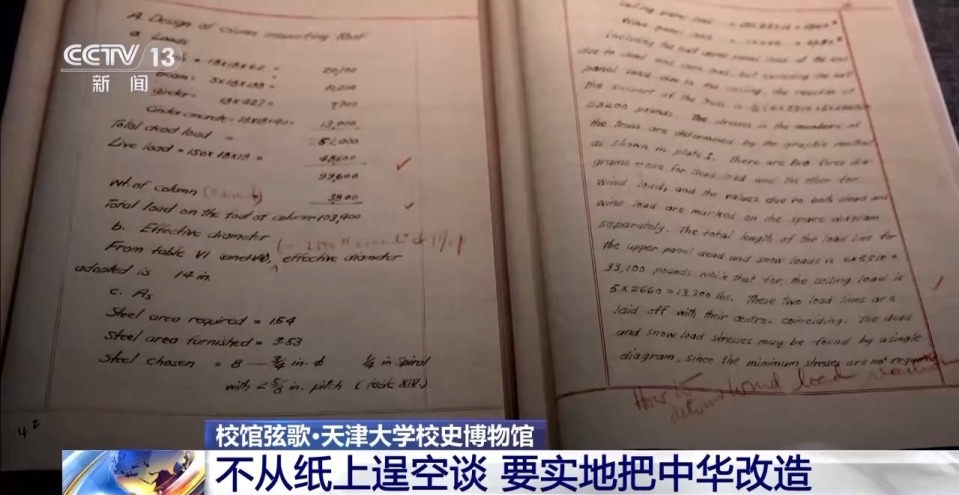 CCTV 13
新闻
A. Design of Column supporting Roof
a. Loads
= 18x18x62 =
Beam = 3x18x188 =
Girder = 18x427 =
7700
Cinder concrete = 18x18x40 = 13,000
Total dead load = 51,000
Live load = 150x18x18 = 48,600
99,600
Wt. of column 3800
Total load on the foot of column = 103,400
b. Effective diameter
From table VI effective diameter
adopted is 14 in.
c. As
Steel area required = 1.54
Steel area furnished = 3.53
Steel chosen = 8 — ¾ in. ф ¼ in spiral
with 2⅝ in. pitch (table XIV)
42
Ceiling panel load
Wind panel load
including the half
due to dead and snow load, but excluding the half
panel load due to the ceiling, the reaction at
the support of the truss is
23200 pounds. The stresses in the members of
the truss are determined by the graphic method
as shown in plate I. There are two
grams made for dead load and the other for
wind load, and the values due to both dead and
wind load are marked on the space diagram
separately. The total length of the load line for
the upper panel dead and snow loads is 6x5510 =
33,100 pounds while that for the ceiling load is
5x2660 = 13,300 lbs. These two load lines are
laid off with their centres coinciding. The dead
and snow load stresses may be found by a single
diagram, since the minimum stresses are not required
How to
determine wind load
校馆弦歌·天津大学校史博物馆
不从纸上逞空谈 要实地把中华改造